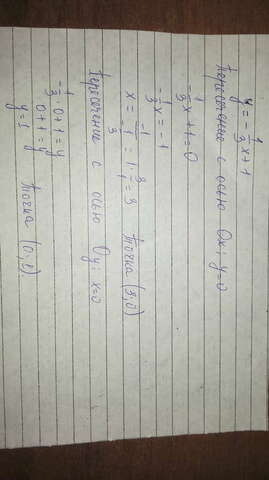 y = -1/3 x + 1
Пересечение с осью Ox: y=0
-1/3 x + 1 = 0
-1/3 x = -1
x = -1/(-1/3) = 1 · 3/1 = 3 Точка (3;0)
Пересечение с осью Oy: x=0
-1/3 · 0 + 1 = y
0+1=y
y=1 Точка (0;1).